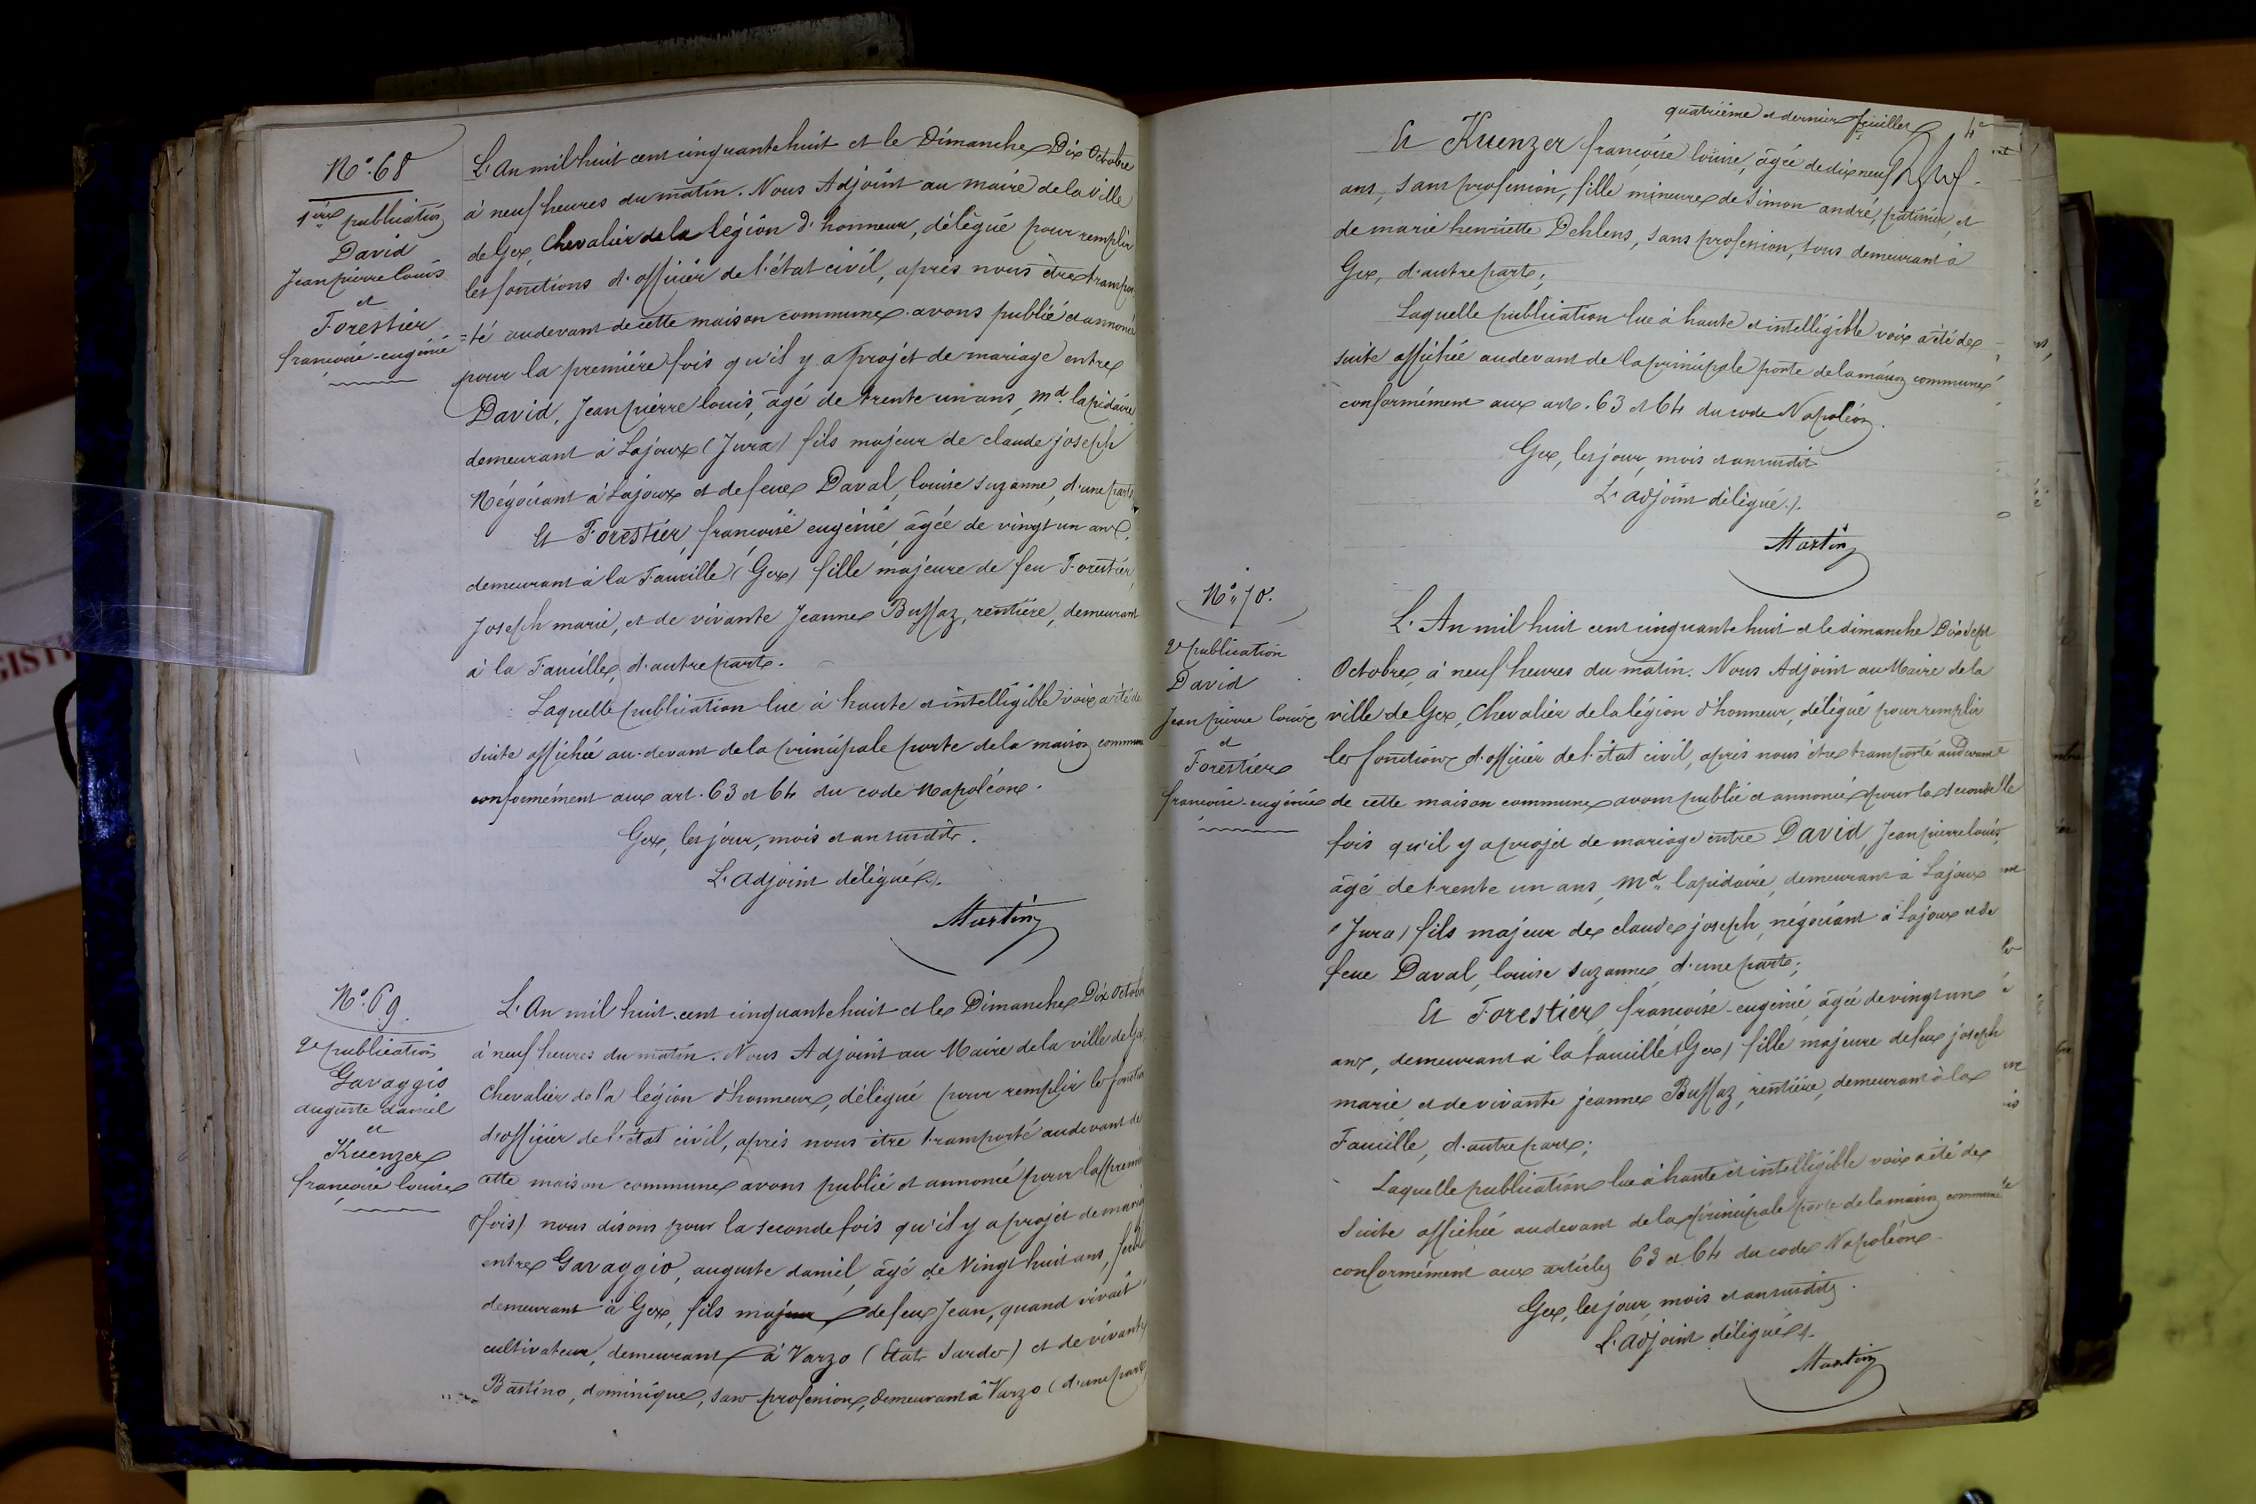 N° 68
1ère publication
David
Jean pierre louis
et
Forestier
françoise-eugénie
L'An mil huit cent cinquante huit et le Dimanche Dix Octobre
à neuf heures du matin. Nous Adjoint au maire de la ville
de Gex, Chevalier de la légion d'honneur, délégué pour remplir
les fonctions d'officier de l'état civil, après nous être transpor
=té audevant de cette maison commune avons publié et annoncé
pour la première fois qu'il y a projet de mariage entre
David, Jean pierre louis, âgé de trente un ans, Md lapidaire
demeurant à Lajoux (Jura) fils majeur de claude joseph
Négociant à Lajoux et de feue Daval, louise suzanne, d'une part,
Et Forestier, françoise eugénie, âgée de vingt un ans,
demeurant à la Faucille (Gex) fille majeure de feu Forestier,
Joseph marie, et de vivante Jeanne Buffaz, rentière, demeurant
à la Faucille, d'autre part.
Laquelle publication lue à haute et intelligible voix a été de
suite affichée au-devant de la principale porte de la maison commune
conformément aux art. 63 et 64 du code Napoléon.
Gex, les jour, mois et an susdits.
L'adjoint délégué.
Martin
N° 69.
2e publication
Gavaggio
auguste daniel
et
Kuenzer
françoise louise
L'An mil huit cent cinquante huit et le Dimanche Dix Octobre
à neuf heures du matin. Nous Adjoint au Maire de la ville de Gex,
Chevalier de la légion d'honneur, délégué pour remplir les fonction
d'officier de l'état civil, après nous être transporté audevant de
cette maison commune avons publié et annoncé pour la premie
fois) nous disons pour la seconde fois qu'il y a projet de maria
entre Gavaggio, auguste daniel, âgé de Vingt huit ans,
demeurant à Gex, fils majeur de feu Jean, quand vivait
cultivateur, demeurant à Varzo (Etats Sardes) et de vivante
Bastino, dominique, sans profession, demeurant à Varzo (d'une part,
quatrième et dernier feuillet 4e
Et Kuenzer françoise louise, âgée de dix neuf
ans, sans profession, fille mineure de Simon andré, pâtissier, et
de marie henriette Dehlens, sans profession, tous demeurant à
Gex, d'autre part;
Laquelle publication lue à haute et intelligible voix a été de
suite affichée audevant de la principale porte de la maison commune
conformément aux art. 63 et 64 du code Napoléon.
Gex, les jour, mois et an susdits
L'adjoint délégué.
Martin
N° 70.
2e publication
David
Jean pierre louis
et
Forestier
françoise-eugénie
L'An mil huit cent cinquante huit et le dimanche Dix Sept
Octobre, à neuf heures du matin. Nous Adjoint au Maire de la
ville de Gex, Chevalier de la légion d'honneur, délégué pour remplir
les fonctions d'officier de l'état civil, après nous être transporté audevant
de cette maison commune avons publié et annoncé pour la seconde
fois qu'il y a projet de mariage entre David, Jean pierre louis,
âgé de trente un ans, Md lapidaire, demeurant à Lajoux
(Jura) fils majeur de claude joseph, négociant à Lajoux et de
feue Daval, louise suzanne, d'une part;
Et Forestier, françoise-eugénie, âgée de vingt un
ans, demeurant à la faucille (Gex) fille majeure de feu joseph
marie et de vivante jeanne Buffaz, rentière, demeurant à la
Faucille, d'autre part;
Laquelle publication lue à haute et intelligible voix a été de
Suite affichée audevant de la principale porte de la maison commune
conformément aux articles 63 et 64 du code Napoléon.
Gex, les jour, mois et an susdits.
L'adjoint délégué.
Martin